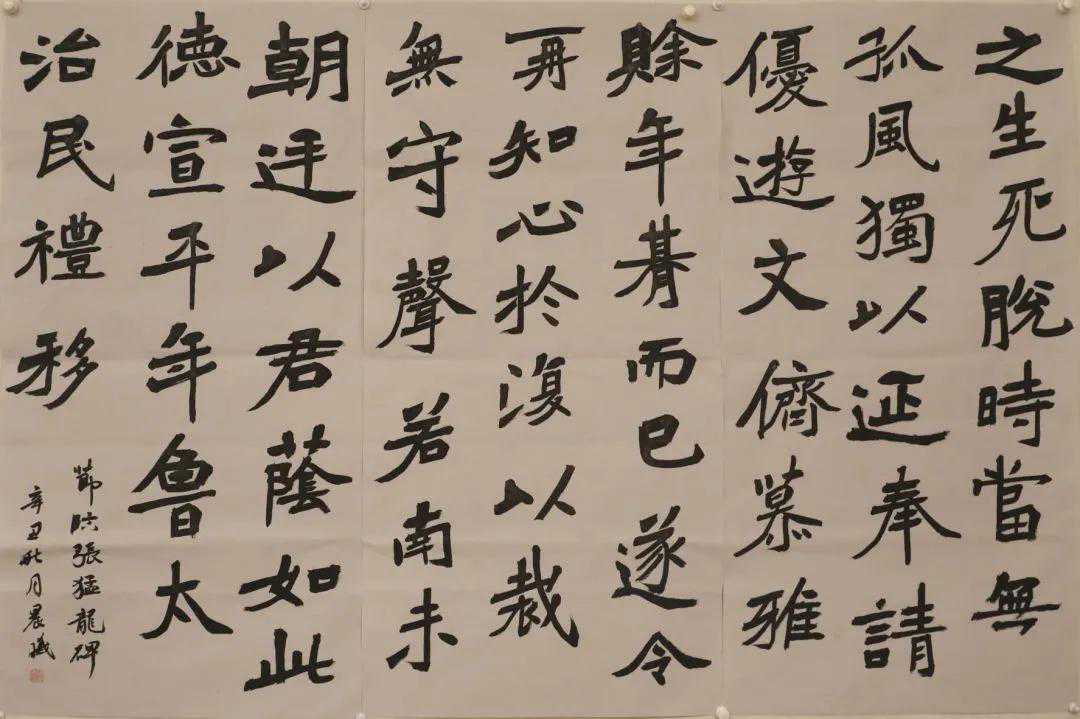 之生死脫時當無
孤風獨以延奉請
優遊文儕慕雅
賒年朞而已遂令
再知心於復以裁
無守聲若南未
朝迋以君蔭如此
德宣平年魯太
治民禮移
節臨張猛龍碑
辛丑秋月晨曦